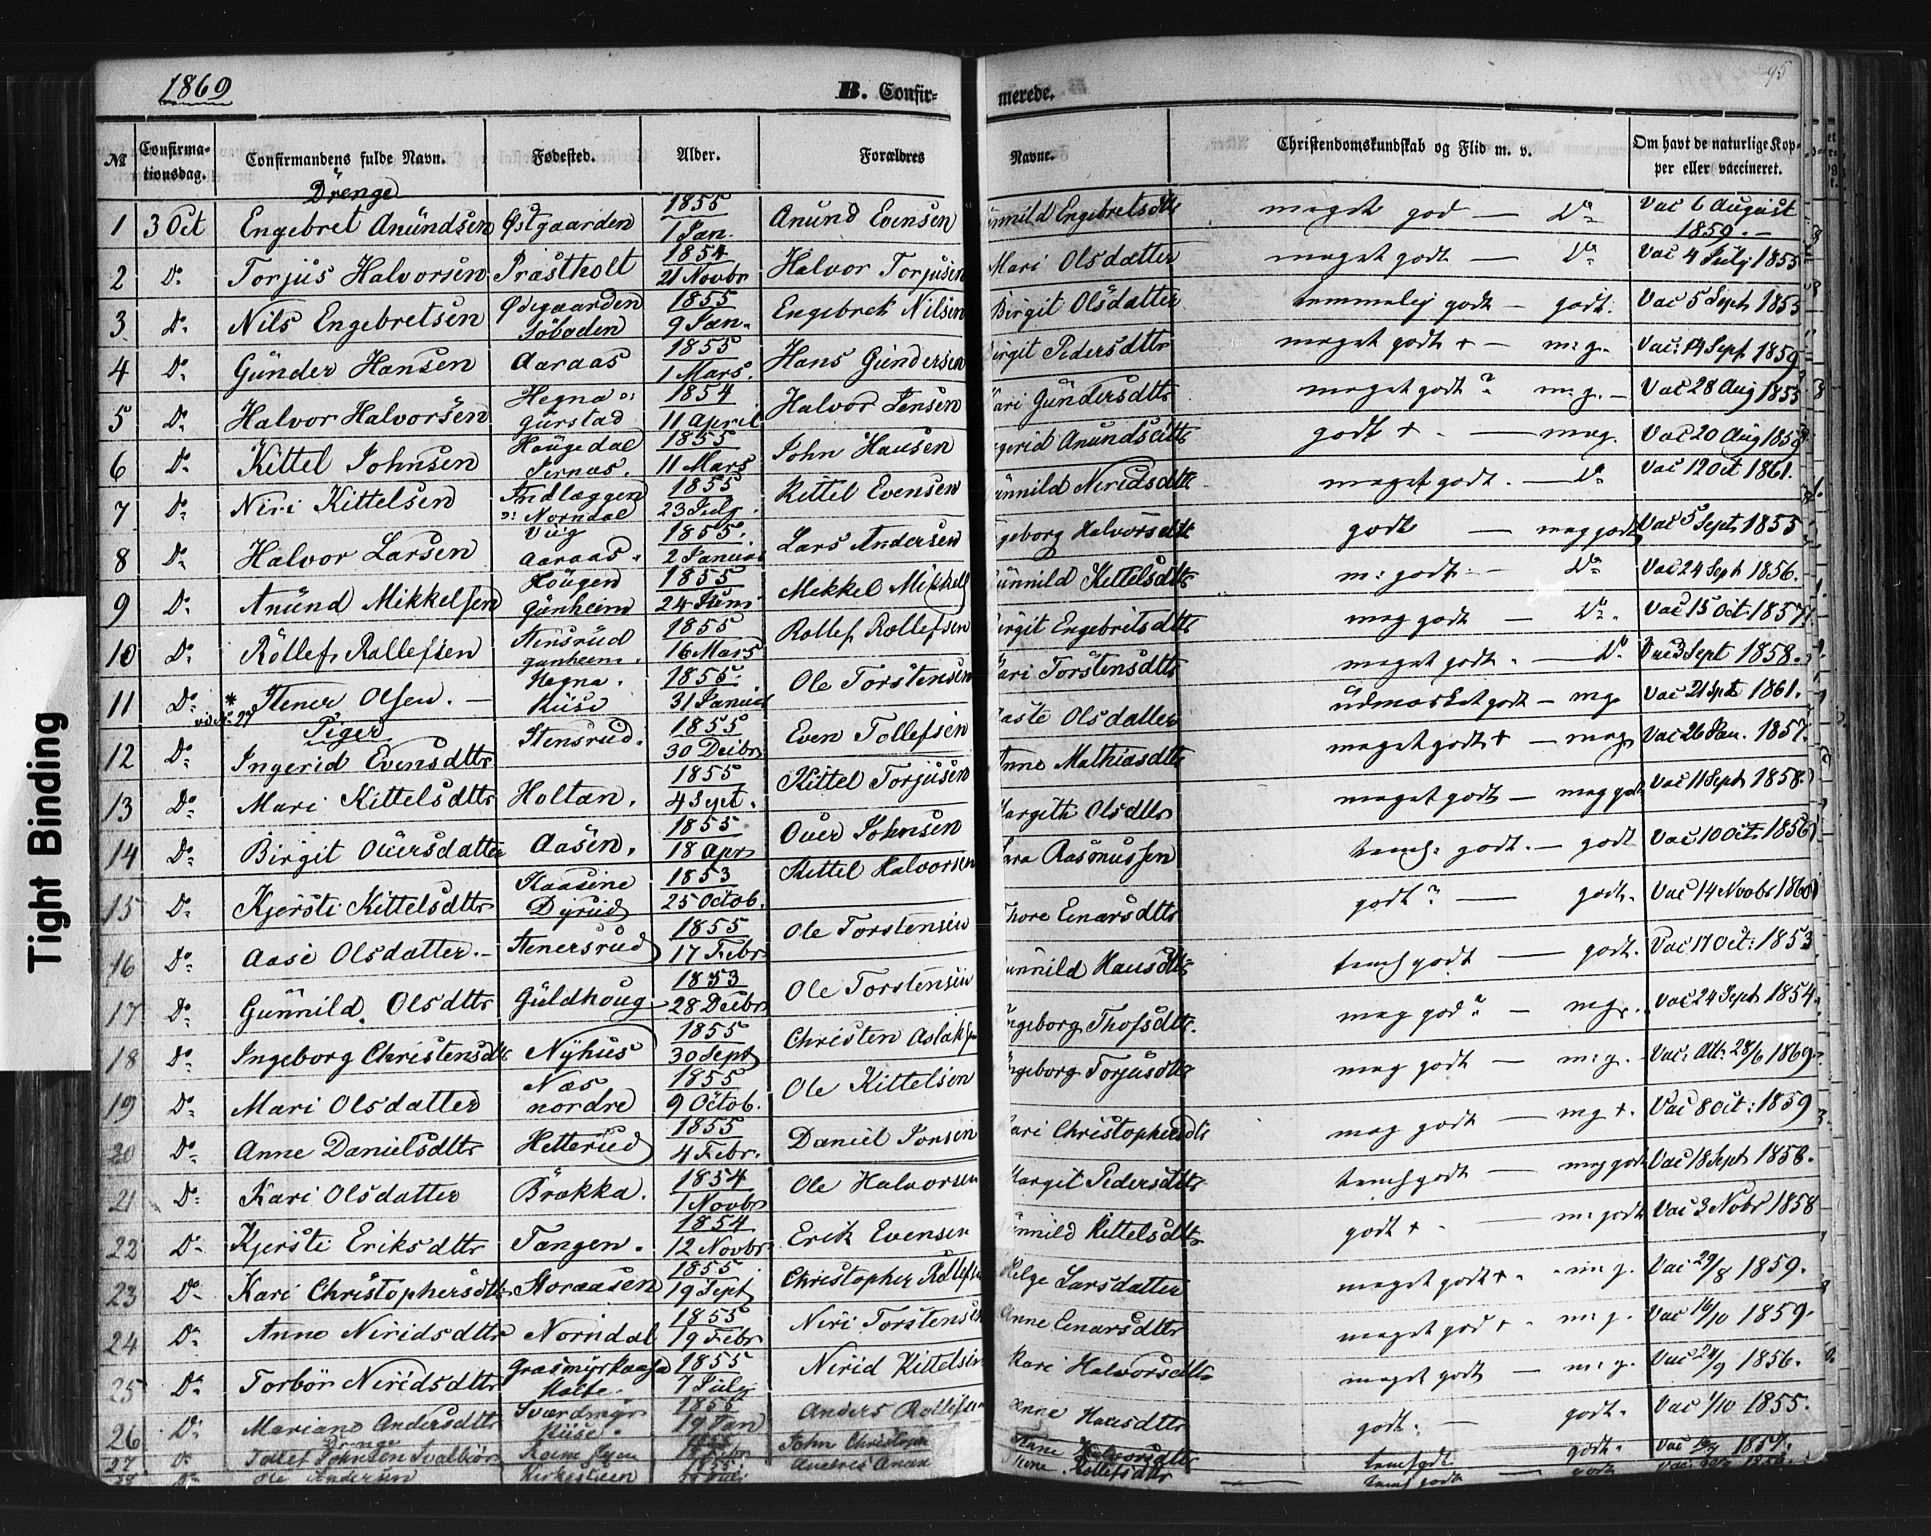 1869
B. Confir-
merede.
95
№
Confirma-
tionsdag.
Confirmandens fulde Navn.
Fødested.
Alder.
Forældres
Navne.
Christendomskundskab og Flid m. v.
Om havt de naturlige Kop-
per eller vaccineret.
Drenge
1 3 Oct Engebret Anundsen Østgaarden 1855 1 Jan. Anund Evensen Gunnild Engebretsdtr meget god — Do Vac 6 August 1859.
2 Do Torjus Halvorsen Præstholt 1854 21 Novbr Halvor Torjusen Mari Olsdatter meget godt — Do Vac 4 July 1855
3 Do Nils Engebretsen Ødegaarden 1855 9 Jan. Engebret Nilsen Birgit Olsdatter temmelig godt — godt. Vac 5 Sept 1855
4 Do Gunder Hansen Aaraas 1855 1 Mars. Hans Gundersen Birgit Pedersdttr meget godt + — m. g. Vac: 14 Sept 1859
5 Do Halvor Halvorsen Hegna Gurstad 1854 11 April Halvor Jensen Kari Gundersdttr meget godt ? m. g. — Vac 28 Aug 1855
6 Do Kittel Johnsen Hougedal Jernæs. 1855 11 Mars John Hansen Ingerid Anundsdttr godt + — meg. Vac 20 Aug 1858
7 Do Niri Kittelsen Norndal 1855 23 July Kittel Evensen Gunnild Niridsdttr meget godt. — Do Vac 12 Oct 1861.
8 Do Halvor Larsen Aaraas 1855. 2 Januar Lars Andersen Ingeborg Halvorsdttr godt — meg godt Vac 5 Sept. 1855
9 Do Anund Mikkelsen Hougen Gunheim 1855 24 Juni Mekkel Mikkels Gunnild Kittelsdttr m: godt — Do Vac 24 Sept 1856.
10 Do Rollef Rollefsen Stensrud Gunheim. 1855 16 Mars Rollef Rollefsen Birgit Engebritsdttr meg godt — Do Vac 15 Oct. 1857
11 Do * Stener Olsen. — Hegna. Kiise 1855. 31 Januar Ole Torstensen Kari Torstensdttr meget godt. — Do Vac 3 Sept 1858.
vid. № 27
Piger
12 Do Ingerid Evensdttr Stensrud. 1855 30 Decbr Even Tollefsen Aaste Olsdatter udmærket godt — mg Vac 21 Sept 1861.
13 Do Mari Kittelsdttr Holtan. 1855 4 Sept. Kittel Torjusen Anne Mathiasdttr meget godt + — meg Vac 26 Jan. 1857.
14 Do Birgit Ouersdatter Aasen. 1855 18 Apr Ouer Johnsen Margith Olsdttr meget godt — meg godt Vac 11 Sept 1858.
15 Do Kjersti Kittelsdttr Kaasine Dyrud 1853 25 Octob. Kittel Halvorsen Sara Rasmussen temf: godt. — godt Vac 10 Oct. 1856
16 Do Aase Olsdatter. — Stenersrud 1855 17 Febr Ole Torstensen Thore Einarsdttr godt ? — godt. Vac 14 Novbr 1860
17 Do Gunnild Olsdttr Guldhoug 1853 28 Decbr Ole Torstensen Gunnild Hansdttr temf godt — godt. Vac 17 Oct: 1853
18 Do Ingeborg Christensdtr Nyhus 1855 30 Sept Christen Aslaksen Ingeborg Thofsdttr. meg god — mg. Vac 24 Sept 1854.
19 Do Mari Olsdatter Næs nordre 1855 9 Octob. Ole Kittelsen Ingeborg Torjusdttr meg godt — m. g. Vac: Att: 28/6 1869
20 Do Anne Danielsdttr Hetterud 1855 4 Febr. Daniel Jonsen Kari Christophersdtr meg godt — mg +. Vac 8 Oct: 1859
21 Do Kari Olsdatter Brækka. 1854 1 Novbr Ole Halvorsen Margit Pedersdttr temf godt — meg godt Vac 18 Sept 1858.
22 Do Kjersti Eriksdttr Tangen. 1854 12 Novbr Erik Evensen Gunnild Kittelsdttr godt + — m: godt Vac 3 Nobr 1858
23 Do Kari Christophersdttr Storaasen 1855 19 Sept Christopher Rollefsen Helge Larsdatter meget godt + m. g. Vac 29/8 1859.
24 Do Anne Niridsdttr Norndal 1855 19 Febr Niri Torstensen Anne Einarsdttr meget god + m: g. Vac 16/10 1859.
25 Do Torbør Niridsdttr Græsmyrkaasa 1855 7 July Nirid Kittelsen Kari Halvorsdttr meget godt — m: g. Vac 24/9 1856.
26 Do Mariane Andersdttr Sværdmyr Kiise. 1855 19 Jan Anders Rollefsen Anne Hansdttr godt. — godt. Vac 1/10 1855.
Drenge
27 Do Tollef Johnsen Svalbiør John Christoph Halvorsdtter temf godt godt. Vac 1857.
28 Do Ole Andersen Kirkesteen 1855 Andres Anun Rollefsdttr — temf godt godt
Tight Binding